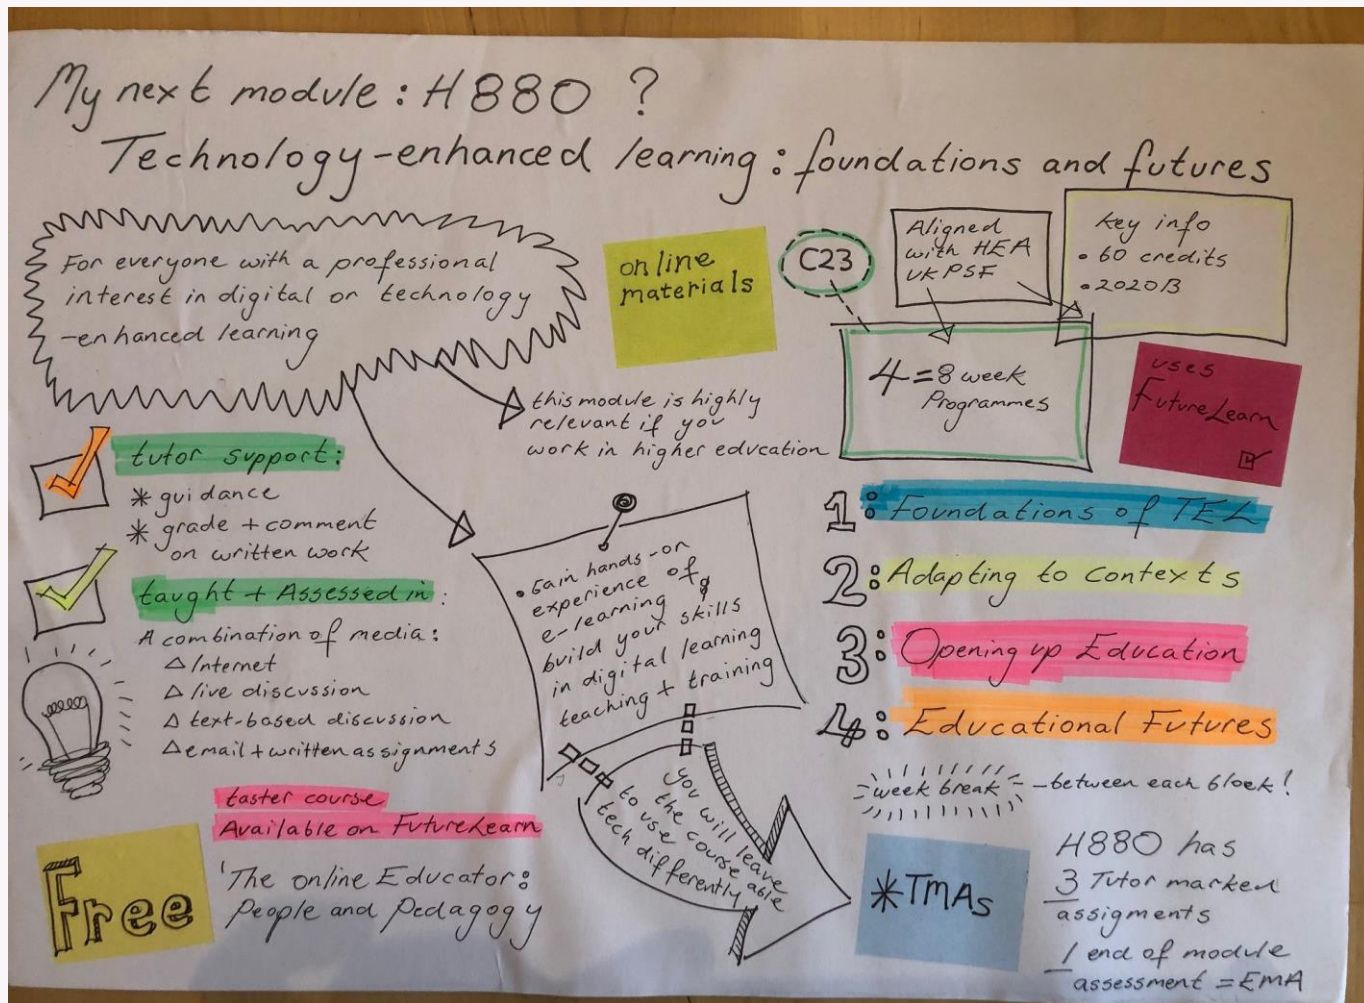 My next module: H880 ?
Technology-enhanced learning: foundations and futures
For everyone with a professional
interest in digital or technology
-enhanced learning
online
materials
C23
Aligned
with HEA
UKPSF
Key info
• 60 credits
• 2020B
4 = 8 week
Programmes
uses
FutureLearn
this module is highly
relevant if you
work in higher education
tutor support:
* guidance
* grade + comment
on written work
taught + Assessed in:
A combination of media:
△ Internet
△ live discussion
△ text-based discussion
△ email + written assignments
• Gain hands-on
experience of
e-learning &
build your skills
in digital learning
teaching + training
you will leave
the course able
to use
tech differently
1: Foundations of TEL
2: Adapting to contexts
3: Opening up Education
4: Educational Futures
week break - between each block!
taster course
Available on FutureLearn
Free
'The online Educator:
People and Pedagogy
*TMAs
H880 has
3 Tutor marked
assigments
1 end of module
assessment = EMA